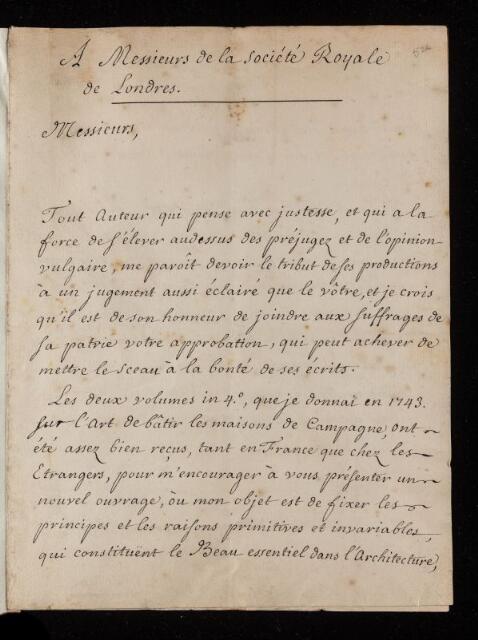 A Messieurs de la société Royale
de Londres.
Messieurs,
Tout Auteur qui pense avec justesse, et qui a la
force de s'élever audessus des préjugez et de l'opinion
vulgaire, me paroît devoir le tribut de ses productions
à un jugement aussi éclairé que le vôtre, et je crois
qu'il est de son honneur de joindre aux suffrages de
sa patrie votre approbation, qui peut achever de
mettre le sceau à la bonté de ses écrits.
Les deux volumes in 4.º, que je donnai en 1743.
sur l'Art de bâtir les maisons de Campagne, ont
été assez bien reçus, tant en France que chez les
Etrangers, pour m'encourager à vous présenter un
nouvel ouvrage, où mon objet est de fixer les
principes et les raisons primitives et invariables
qui constituent le Beau essentiel dans l'Architecture,